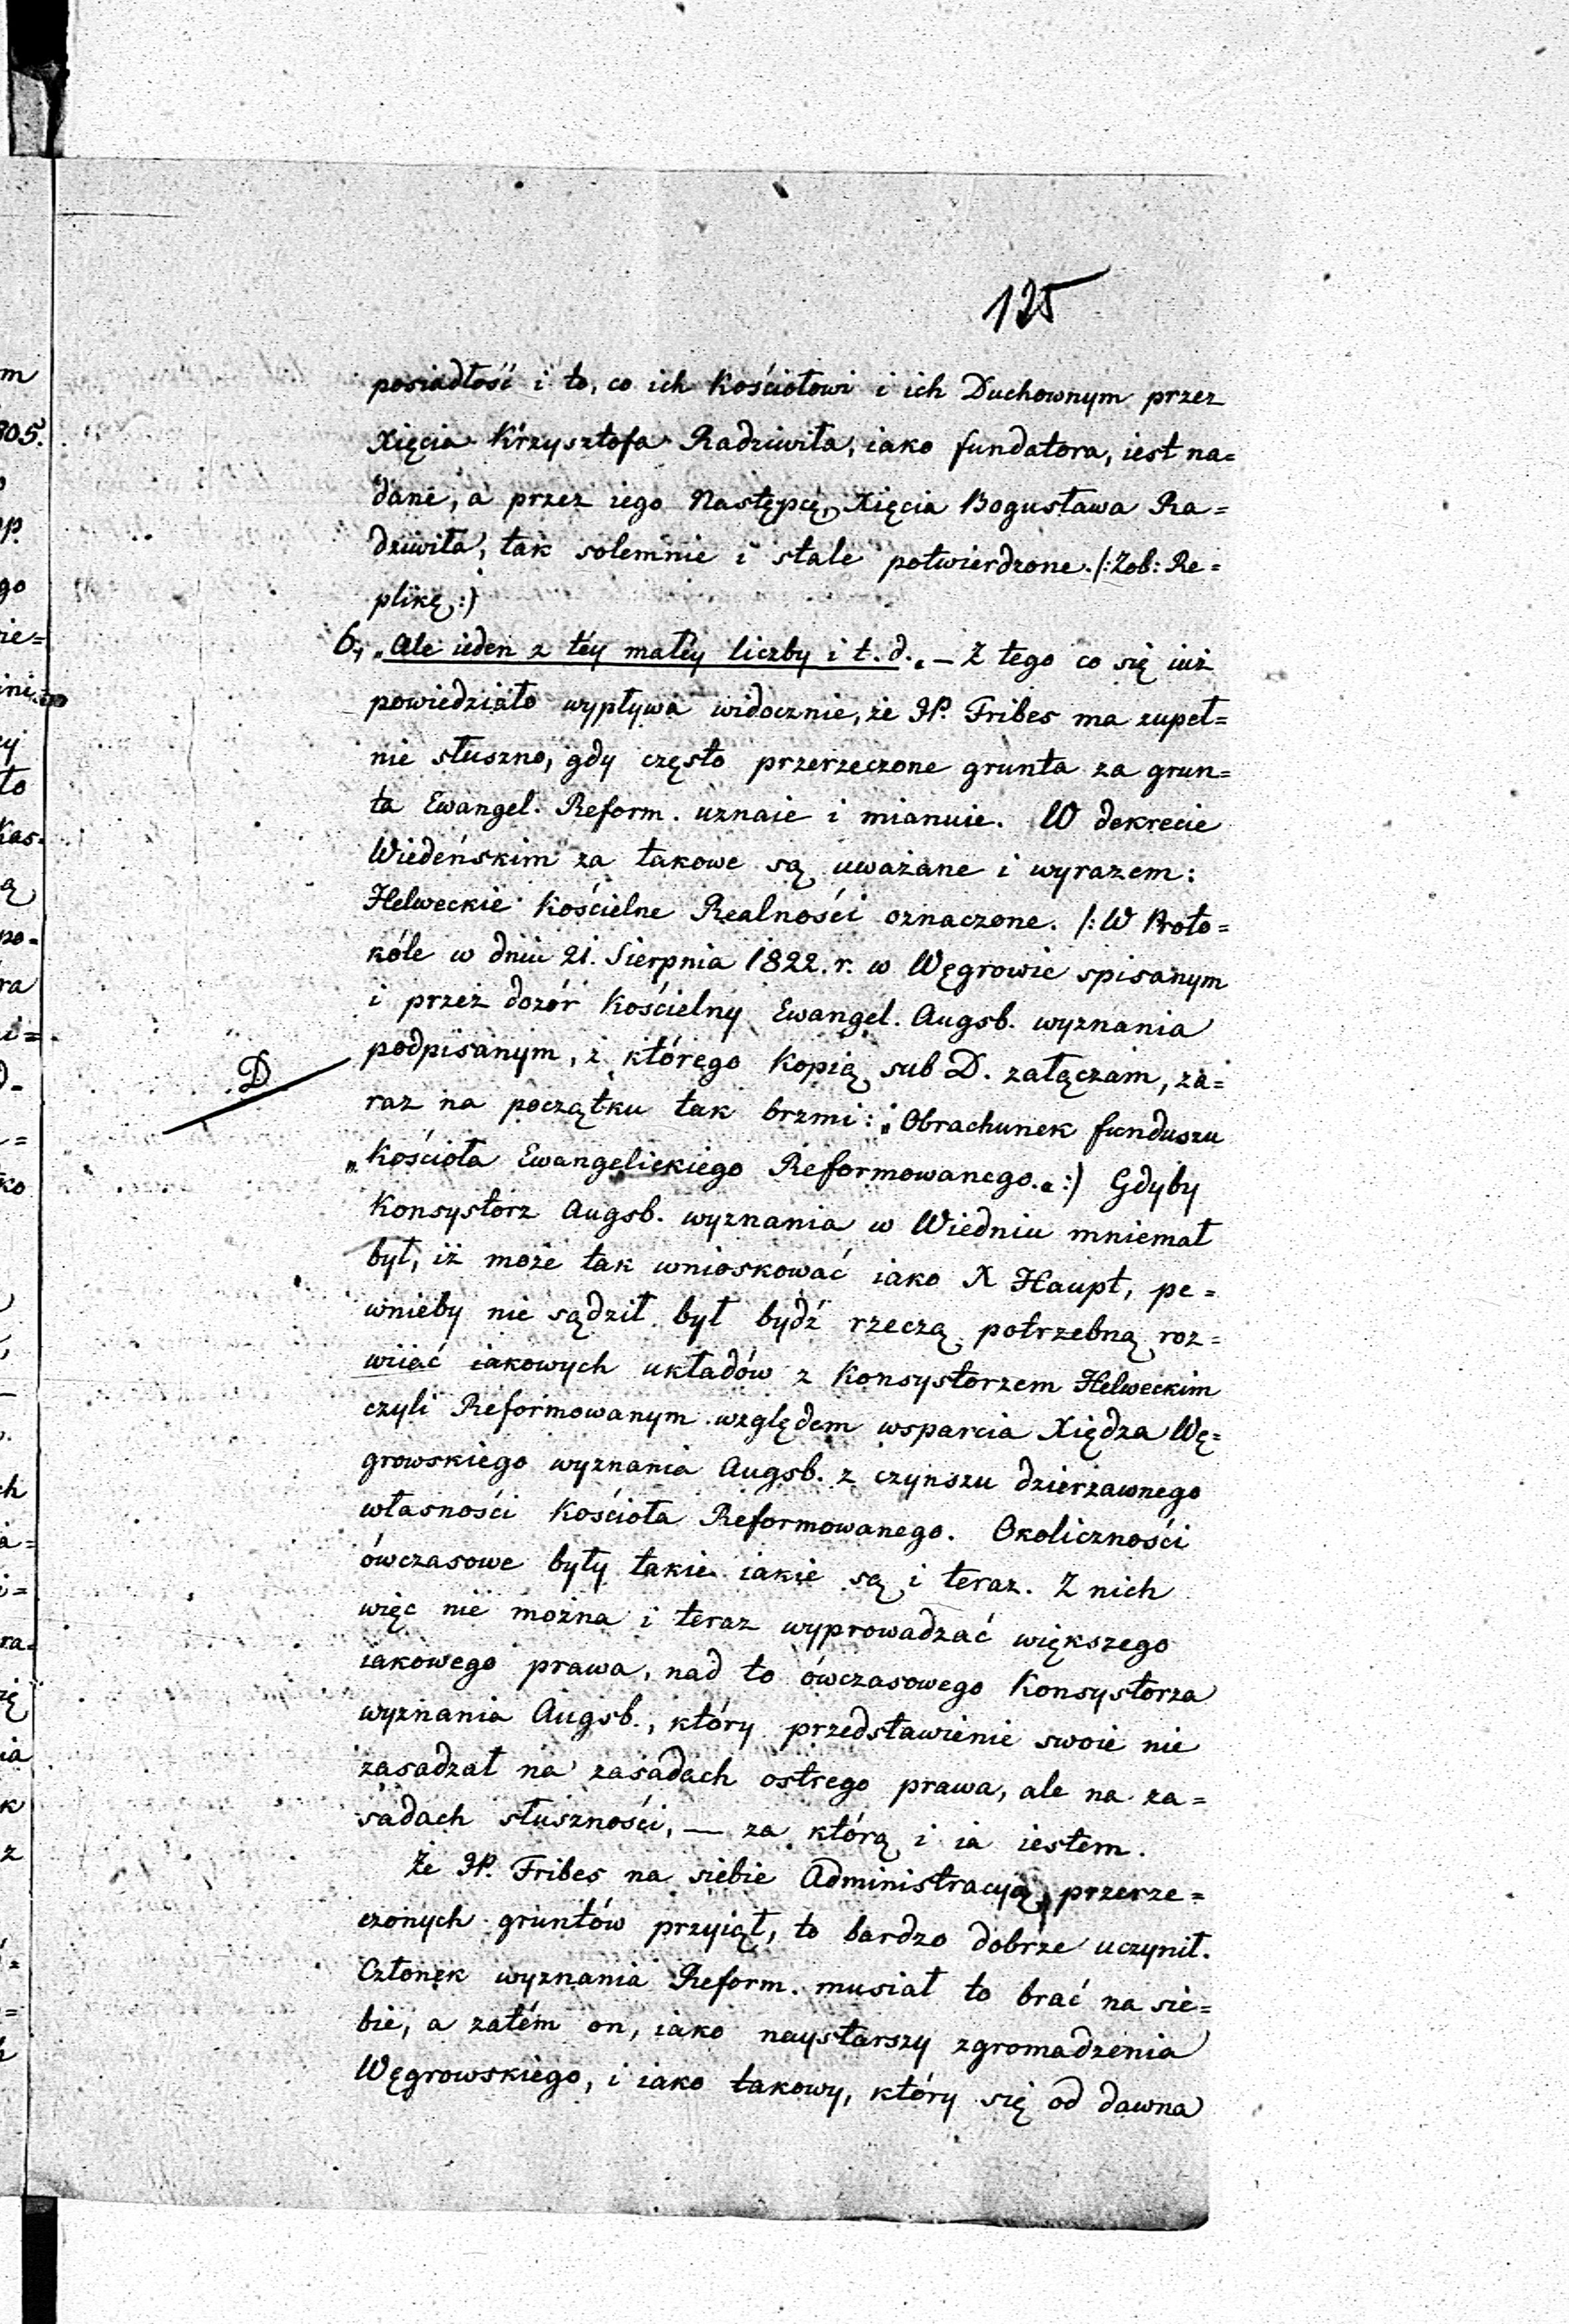 125
posiadłość i to, co ich Kościołowi i ich Duchownym przez
Xięcia Krzysztofa Radziwiła, iako fundatora, iest na=
dane, a przez iego Następcę, Xięcia Bogusława Ra=
dziwiła, tak solemnie i stale potwierdzone. /:Zob: Re=
plikę:)
6, „Ale ieden z téy małéy liczby i t. d.„ — Z tego co się iuż
powiedziało wypływa widocznie, że JP. Fribes ma zupeł=
nie słuszno, gdy często przerzeczone grunta za grun=
ta Ewangel. Reform. uznaie i mianuie. W dekrecie
Wiedeńskim za takowe są uważane i wyrazem:
Helweckie Kościelne Realności oznaczone. /:W Proto=
kóle w dniu 21. Sierpnia 1822. r. w Węgrowie spisanym
i przez dozór Kościelny Ewangel. Augsb. wyznania
D podpisanym, z którego Kopią sub D. załączam, za=
raz na początku tak brzmi: „Obrachunek funduszu
„Kościoła Ewangelickiego Reformowanego.„:) Gdyby
Konsystorz Augsb. wyznania w Wiedniu mniemał
był, iż może tak wnioskować iako X Haupt, pe=
wnieby nie sądził był bydź rzeczą potrzebną roz=
wiiać iakowych układów z Konsystorzem Helweckim
czyli Reformowanym względem wsparcia Xiędza Wę=
growskiego wyznania Augsb. z czynszu dzierżawnego
własności Kościoła Reformowanego. Okoliczności
ówczasowe były takie iakie są i teraz. Z nich
więc nie można i teraz wyprowadzać większego
iakowego prawa, nad to ówczasowego Konsystorza
wyznania Augsb., który przedstawienie swoie nie
zasadzał na zasadach ostrego prawa, ale na za=
sadach słuszności, — za którą i ia iestem.
Że JP. Fribes na siebie Administracyą przerze=
czonych gruntów przyiął, to bardzo dobrze uczynił.
Członek wyznania Reform. musiał to brać na sie=
bie, a zatém on, iako naystarszy zgromadzenia
Węgrowskiego, i iako takowy, który się od dawna